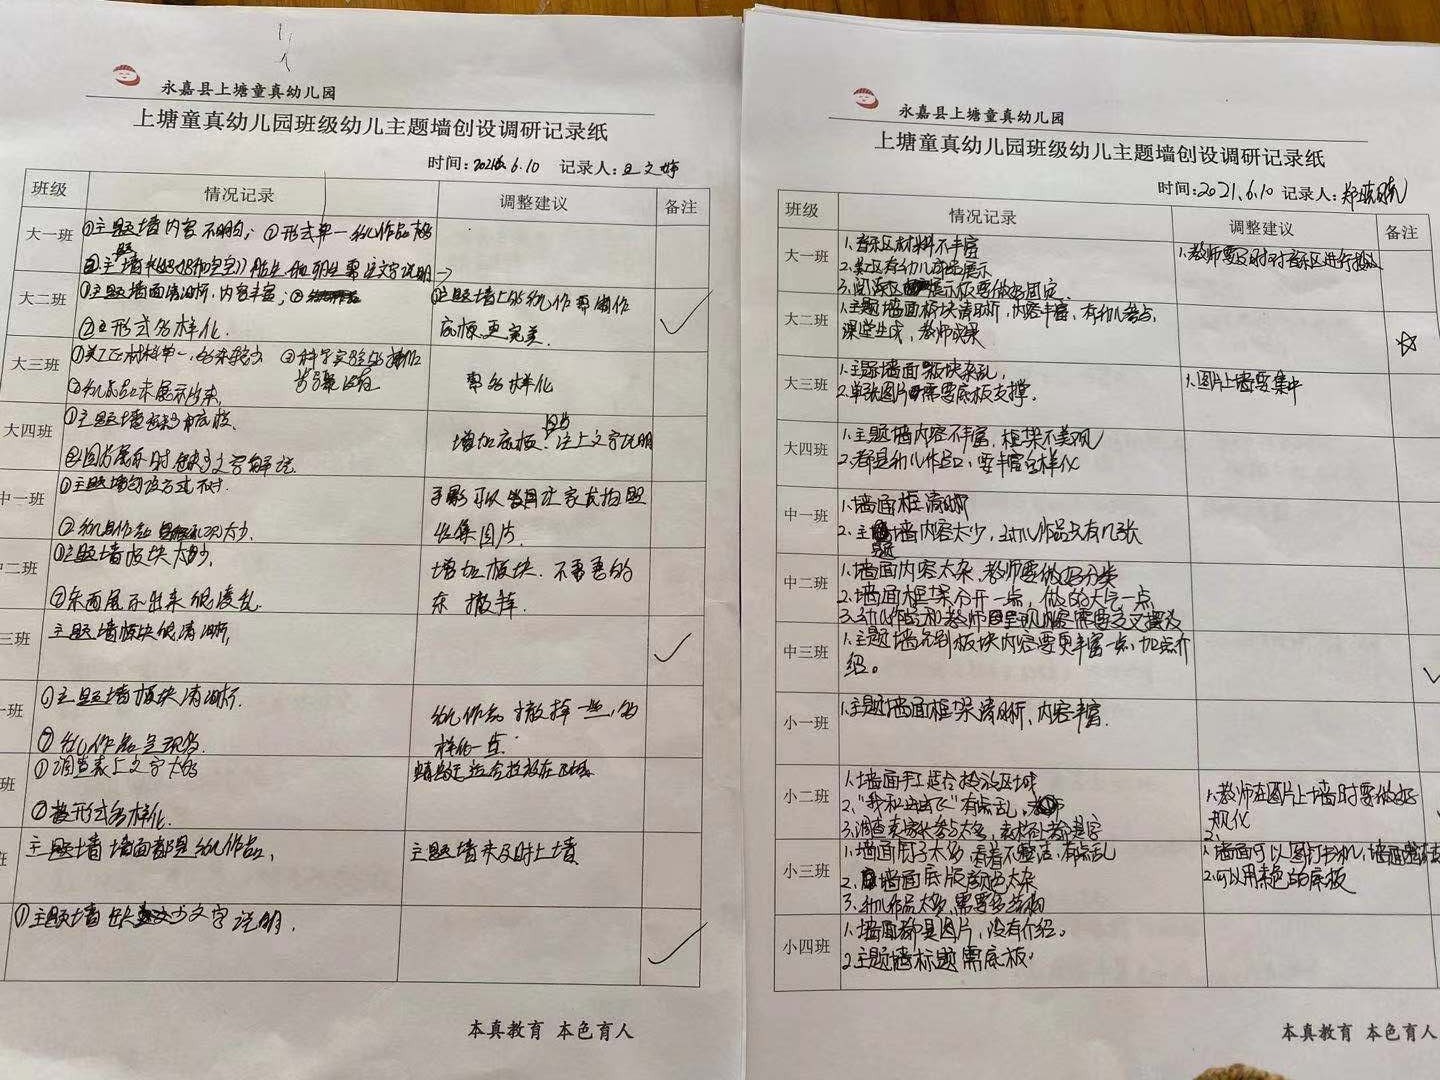 永嘉县上塘童真幼儿园
上塘童真幼儿园班级幼儿主题墙创设调研记录纸
时间: 6.10 记录人: 王文婷
班级 情况记录 调整建议 备注
大一班
①主题墙内容不明确; ②形式单一 幼儿作品
文字说明
大二班
①主题墙面清晰, 内容丰富;
②形式多样化.
主题墙上的幼儿作 需制作
底板更完美. ✓
大三班
①美工区材料单一,
步骤
②幼儿作品未展示出来.
多样化
大四班
①主题墙 底板.
②图片展示时缺少文字解说
增加底板. 注上文字说明
中一班
①主题墙 方式不对.
②幼儿作品 太少.
可以 让家长拍照
收集图片.
中二班
①主题墙板块太少,
②东西展示出来很凌乱.
增加板块. 不需要的
撤掉
三班
主题墙板块很清晰, ✓
一班
①主题墙板块清晰.
②幼儿作品呈现多.
幼儿作品 撤掉一些, 多
样化一点.
班
①调查表上文字太多
②形式多样化.
班
主题墙墙面都是幼儿作品,
主题墙未及时上墙
①主题墙缺少文字说明. ✓
本真教育 本色育人
永嘉县上塘童真幼儿园
上塘童真幼儿园班级幼儿主题墙创设调研记录纸
时间: 2021.6.10 记录人:
班级 情况记录 调整建议 备注
大一班
1.音乐区材料不丰富
2.美工区有幼儿作品展示
3.阅读区 展示板要做好固定.
1.教师要及时对音乐区进行
大二班
1.主题墙面板块清晰,内容丰富,有幼儿参与,
课堂生成,教师成果 ☆
大三班
1.主题墙面版块杂乱,
2.单张图片需要底板支撑.
1.图片上墙要集中
大四班
1.主题墙内容不丰富,框架不美观
2.都是幼儿作品,要丰富多样化
中一班
1.墙面框清晰
2.主题墙内容太少,幼儿作品只有几张
中二班
1.墙面内容太杂,教师要做好分类
2.墙面框架分开一点,做的大气一点
3.幼儿作品和教师呈现内容需要交叉摆放
中三班
1.主题墙个别板块内容要更丰富一点,加点介
绍。 ✓
小一班
1.主题墙面框架清晰,内容丰富.
小二班
1.墙面手工适合投放区域
2."我和 飞"有点乱,
3.调查表家长参与太多,表格上都是字
1.教师在图片上墙时要做好
规化
2.
小三班
1.墙面钉子太多,看着不整洁,有点乱
2.墙面底版颜色太杂
3.幼儿作品太多,需要多
1.墙面可以用钉书机,墙面整洁
2.可以用素色的底板
小四班
1.墙面都是图片,没有介绍。
2.主题墙标题需底板.
本真教育 本色育人